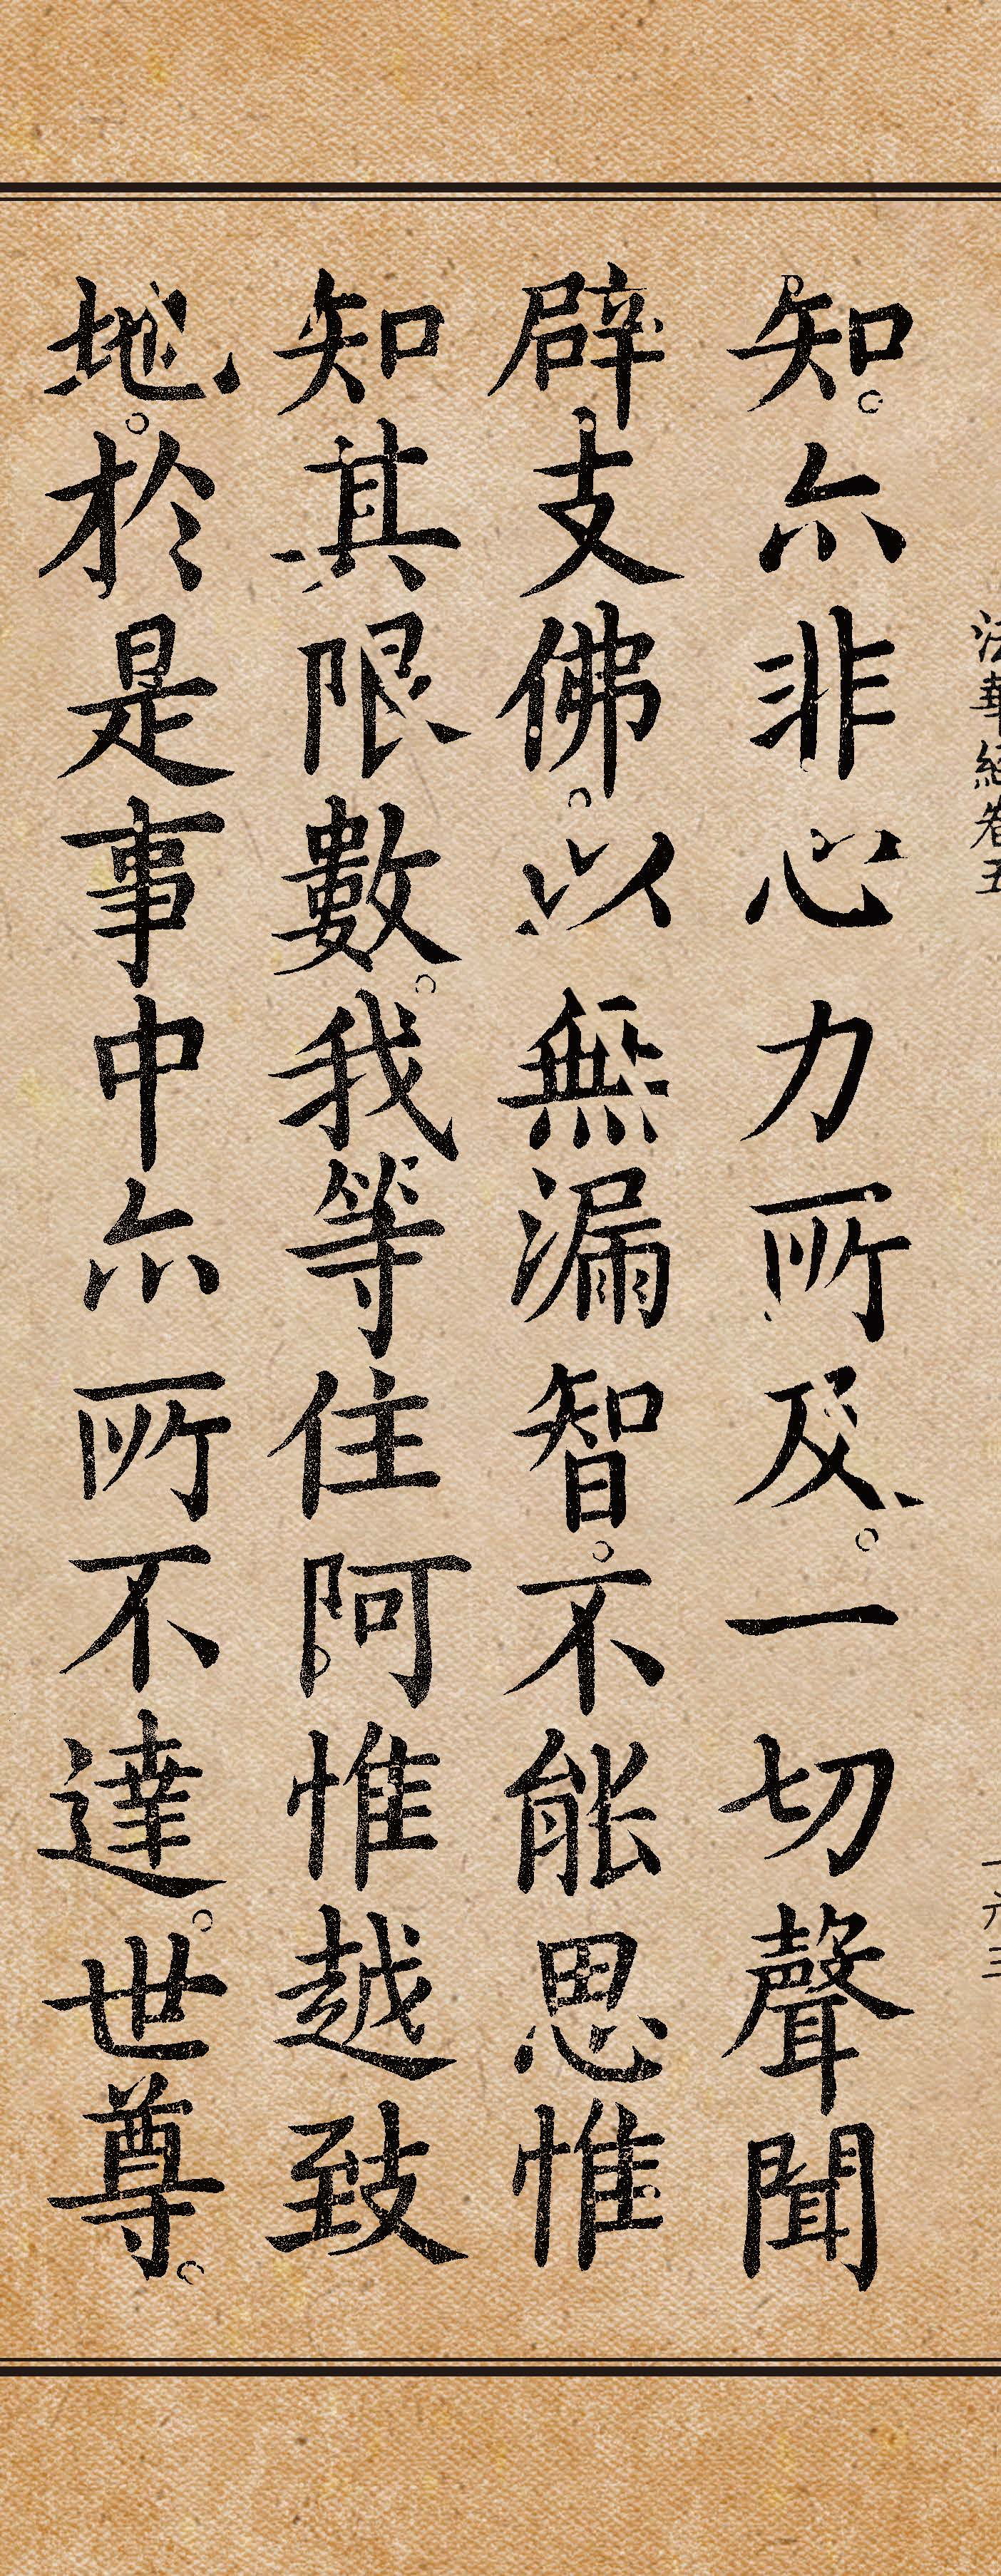 法華經卷五 一六三
知。亦非心力所及。一切聲聞
辟支佛。以無漏智。不能思惟
知其限數。我等住阿惟越致
地。於是事中亦所不達。世尊。